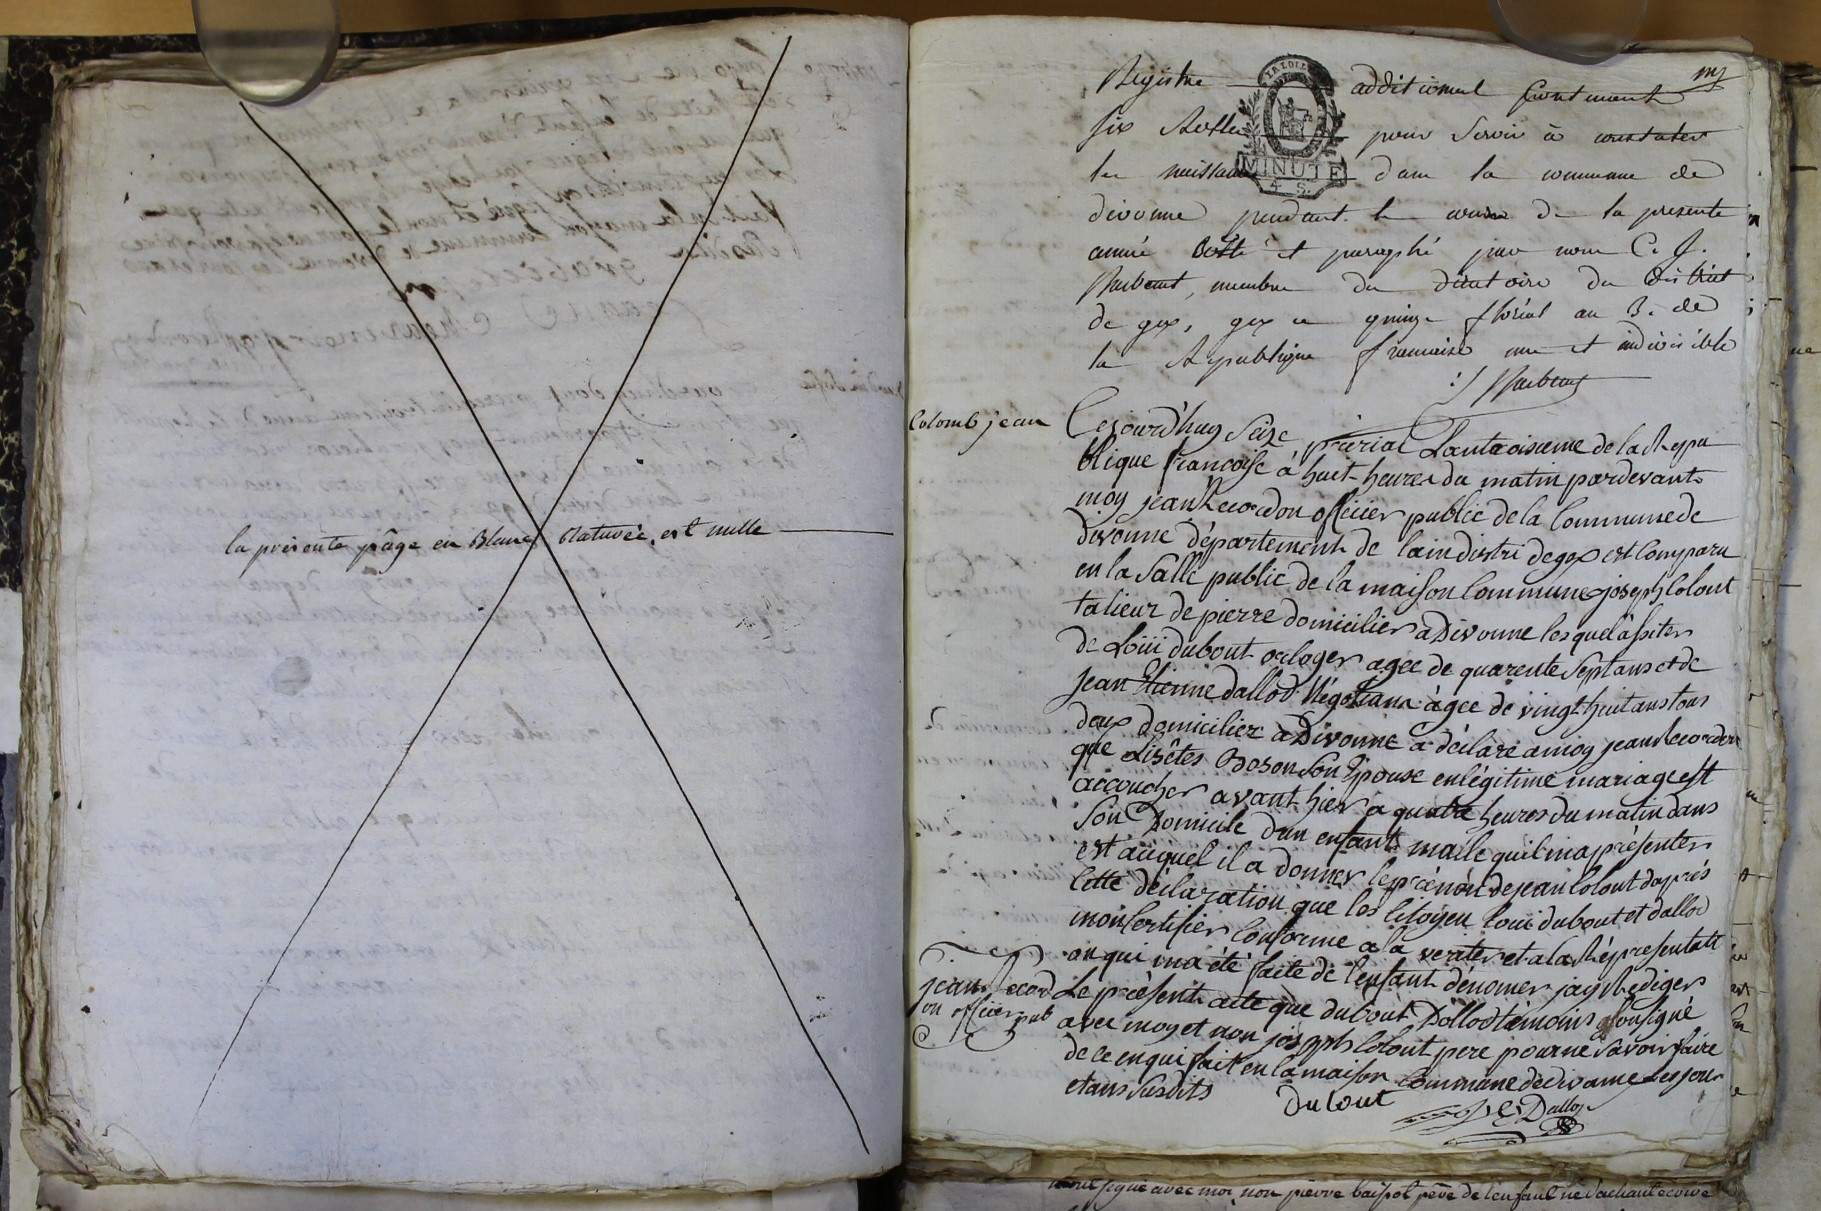 la présente page en Blanc Raturée, est nulle
Registre additionnel Contenant
six Rolles pour servir à constater
les naissances dans la commune de
divonne pendant le cours de la presente
année Cotté et paraphé par nous C. J.
membre du directoire du District
de gex, gex ce quinze floréal an 3e. de
la Republique francaise une et indivisible
LA LOI
MINUTE
4. S.
Colomb jean
Cejourd'huy Seize prairial Lantroisieme de la Repu
blique françoise à huit heures du matin pardevant
moy jean Recordon officier public de la Commune de
divonne département de lain distri de gex est Comparu
en la Salle public de la maison Commune joseph Colout
talieur de pierre domicilier a Divonne lesquel assiter
de Loüi dubout orloger agee de quarente Sept ans et de
jean Etienne dallod Négotiant àgee de vingt huit ans tous
deux domicilier à Divonne a déclare a moy jean Recordon
que Lisètes Boson Son Epouse en légitime mariage est
accoucher avant hier a quatre heures du matin dans
Son Domicile dun enfant maile quil ma présenter
est auquel il a donner le prénon de jean Colout daprés
Cette déclaration que les Citoyen Loui dubout et dallod
mon Certifier Conforme a la veriter et a la Répresentati
on qui ma été faite de l'enfant dénomer jay Rédiger
Le présent acte que dubout Dallod témoins on Signé
avec moy et non joseph Colout pere pour ne Savoir faire
de ce enqui fait en la maison Commune de divonne Les jour
et ans Susdits
jean Record
on officier pub
Dubout
J. E. Dallod
signe avec moi, non pierre père de lenfant ne sachant ecrire